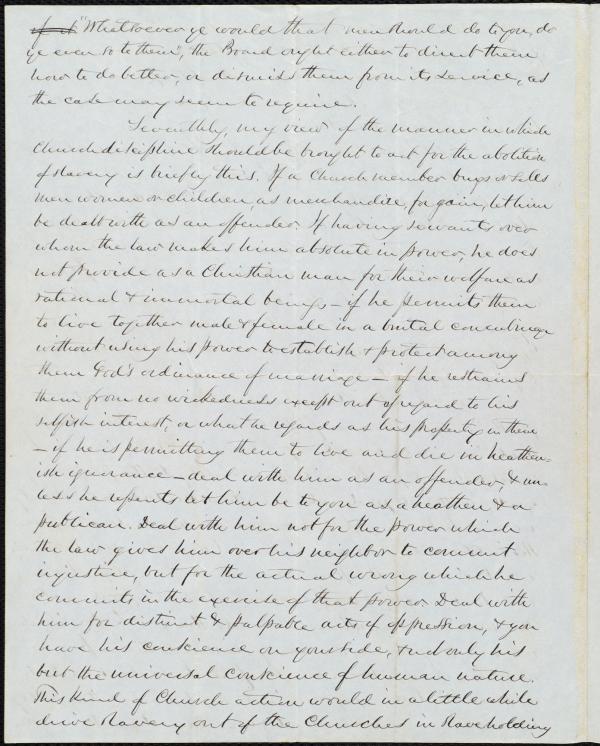 "Whatsoever ye would that men should do to you, do
ye even so to them", the Board ought either to direct them
how to do better, or dismiss them from its service, as
the case may seem to require.
Seventhly, my view of the manner in which
Church discipline should be brought to act for the abolition
of slavery is briefly this. If a Church member buys or sells
men women or children, as merchandize, for gain, let him
be dealt with as an offender. If having servants over
whom the law makes him absolute in power, he does
not provide as a Christian man for their welfare as
rational & immortal beings – if he permits them
to live together male & female in a brutal concubinage
without using his power to establish & protect among
them God's ordinance of marriage – if he restrains
them from no wickedness except out of regard to his
selfish interest, or what he regards as his property in them
– if he is permitting them to live and die in heathen-
ish ignorance – deal with him as an offender, & un-
less he repents let him be to you as a heathen & a
publican. Deal with him not for the power which
the law gives him over his neighbor to commit
injustice, but for the actual wrong which he
commits in the exercise of that power. Deal with
him for distinct & palpable acts of oppression, & you
have his conscience on your side, & not only his
but the universal conscience of human nature.
This kind of Church action would in a little while
drive slavery out of the Churches in slaveholding